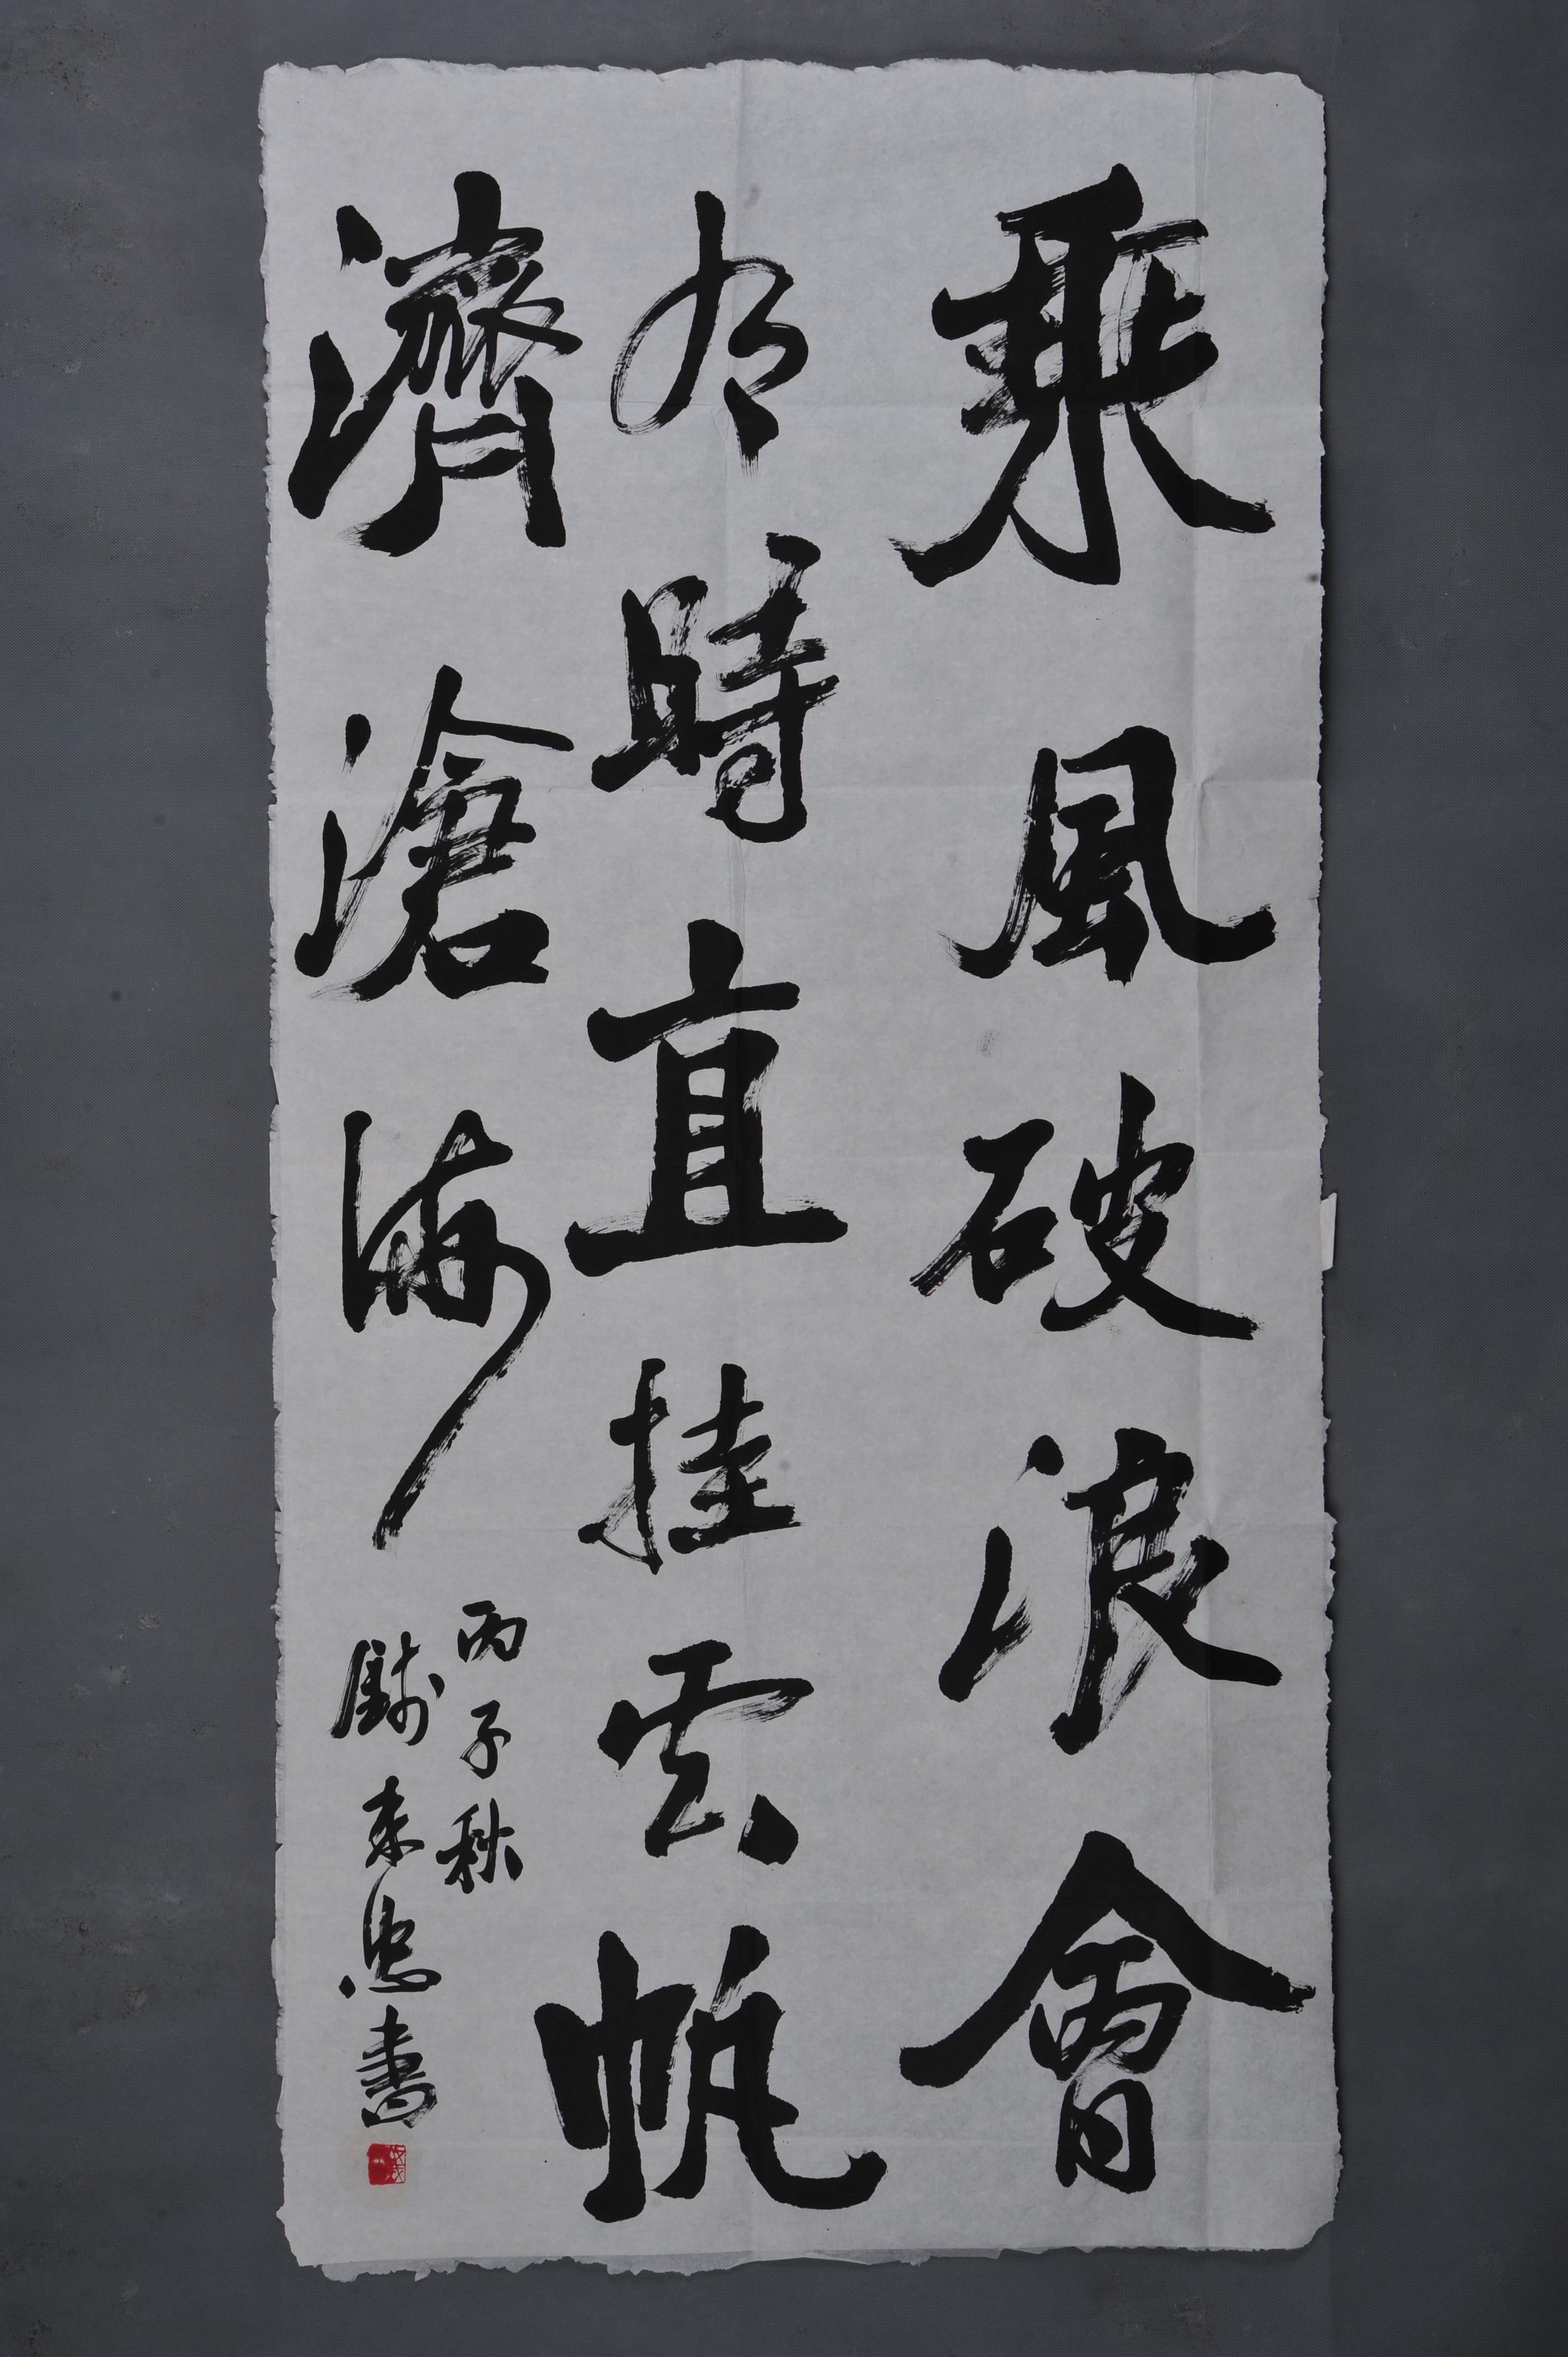 乘風破浪會
有時直挂云帆
濟滄海
丙子秋
劉來忠書